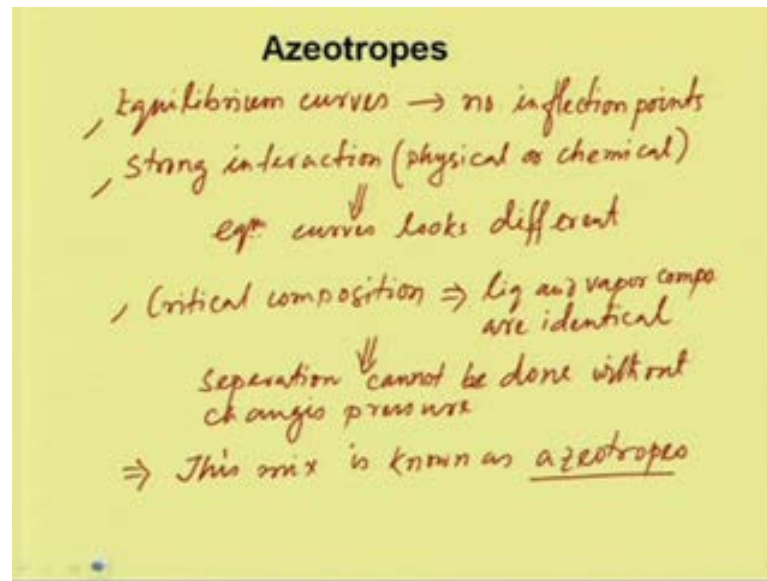 Azeotropes
, Equilibrium curves → no inflection points
, Strong interaction (physical or chemical)
⇓
eqm curves looks different
, Critical composition ⇒ liq and vapor compo.
are identical
⇓
seperation cannot be done without
changis pressure
⇒ This mix is known as azeotropes